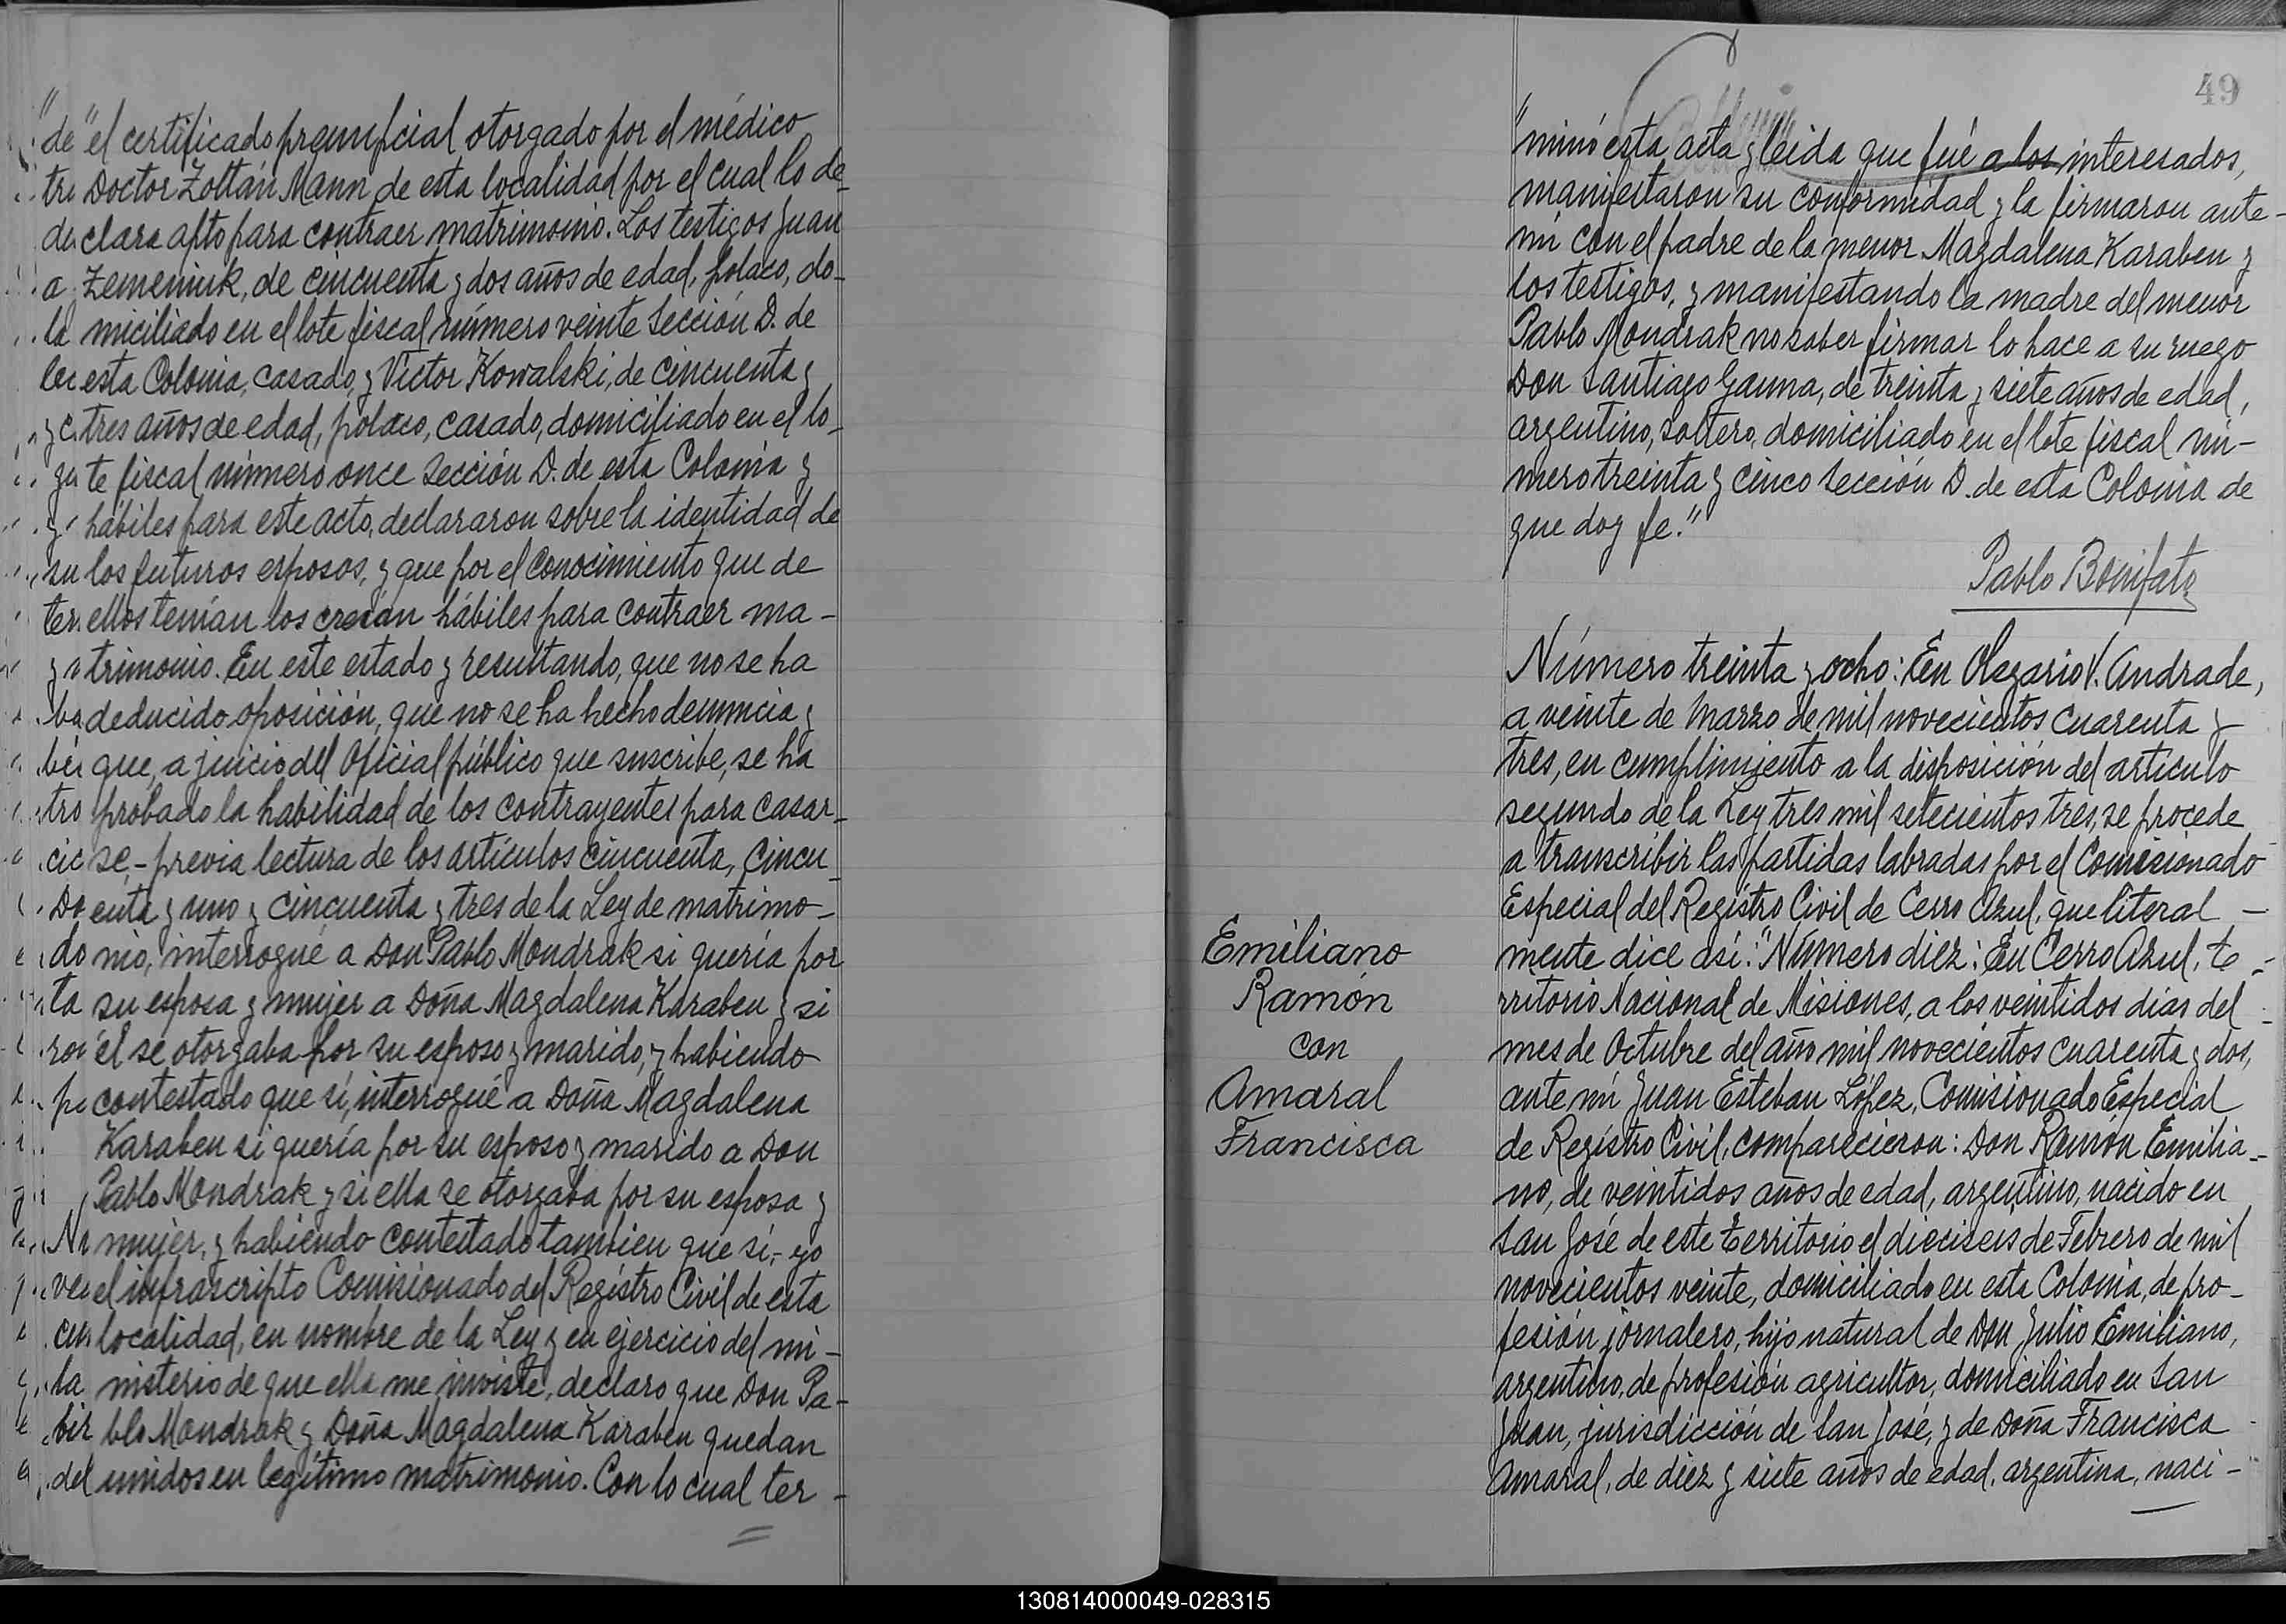 "el certificado prenupcial otorgado por el médico
Doctor Zoltán Mann de esta localidad por el cual lo de-
clara apto para contraer matrimonio. Los testigos Juan
Zemeniuk, de cincuenta y dos años de edad, polaco, do-
miciliado en el lote fiscal número veinte Sección D. de
esta Colonia, casado, y Víctor Kowalski, de cincuenta y
tres años de edad, polaco, casado, domiciliado en el lo-
te fiscal número once Sección D. de esta Colonia y
hábiles para este acto, declararon sobre la identidad de
los futuros esposos, y que por el conocimiento que de
ellos tenían los creían hábiles para contraer ma-
trimonio. En este estado y resultando, que no se ha
deducido oposición, que no se ha hecho denuncia y
que, a juicio del Oficial público que suscribe, se ha
probado la habilidad de los contrayentes para casar-
se,- previa lectura de los artículos cincuenta, cincu-
enta y uno y cincuenta y tres de la Ley de matrimo-
nio, interrogué a Don Pablo Mondrak si quería por
su esposa y mujer a Doña Magdalena Karaben y si
él se otorgaba por su esposo y marido, y habiendo
contestado que sí, interrogué a Doña Magdalena
Karaben si quería por su esposo y marido a Don
Pablo Mondrak y si ella se otorgaba por su esposa y
mujer, y habiendo contestado tambien que sí,- yo
el infrascripto Comisionado del Registro Civil de esta
localidad, en nombre de la Ley y en ejercicio del mi-
nisterio de que ella me inviste, declaro que Don Pa-
blo Mondrak y Doña Magdalena Karaben quedan
unidos en legítimo matrimonio. Con lo cual ter-
49
"minó esta acta y leída que fué a los interesados,
manifestaron su conformidad y la firmaron ante-
mí con el padre de la menor Magdalena Karaben y
los testigos, y manifestando la madre del menor
Pablo Mondrak no saber firmar lo hace a su ruego
Don Santiago Gauna, de treinta y siete años de edad,
argentino, soltero, domiciliado en el lote fiscal nú-
mero treinta y cinco Sección D. de esta Colonia de
que doy fe."
Pablo Bonifato
Número treinta y ocho: En Olegario V. Andrade,
a veinte de Marzo de mil novecientos cuarenta y
tres, en cumplimiento a la disposición del artículo
segundo de la Ley tres mil setecientos tres, se procede
a transcribir las partidas labradas por el Comisionado
Especial del Registro Civil de Cerro Azul, que literal-
mente dice así: "Número diez: En Cerro Azul, te-
rritorio Nacional de Misiones, a los veintidos días del
mes de Octubre del año mil novecientos cuarenta y dos,
ante mí Juan Esteban López, Comisionado Especial
de Registro Civil, comparecieron: Don Ramón Emilia-
no, de veintidos años de edad, argentino, nacido en
San José de este territorio el dieciseis de Febrero de mil
novecientos veinte, domiciliado en esta Colonia, de pro-
fesión jornalero, hijo natural de Don Julio Emiliano,
argentino, de profesión agricultor, domiciliado en San
Juan, jurisdicción de San José, y de Doña Francisca
Amaral, de diez y siete años de edad, argentina, naci-
Emiliano
Ramón
con
Amaral
Francisca
130814000049-028315